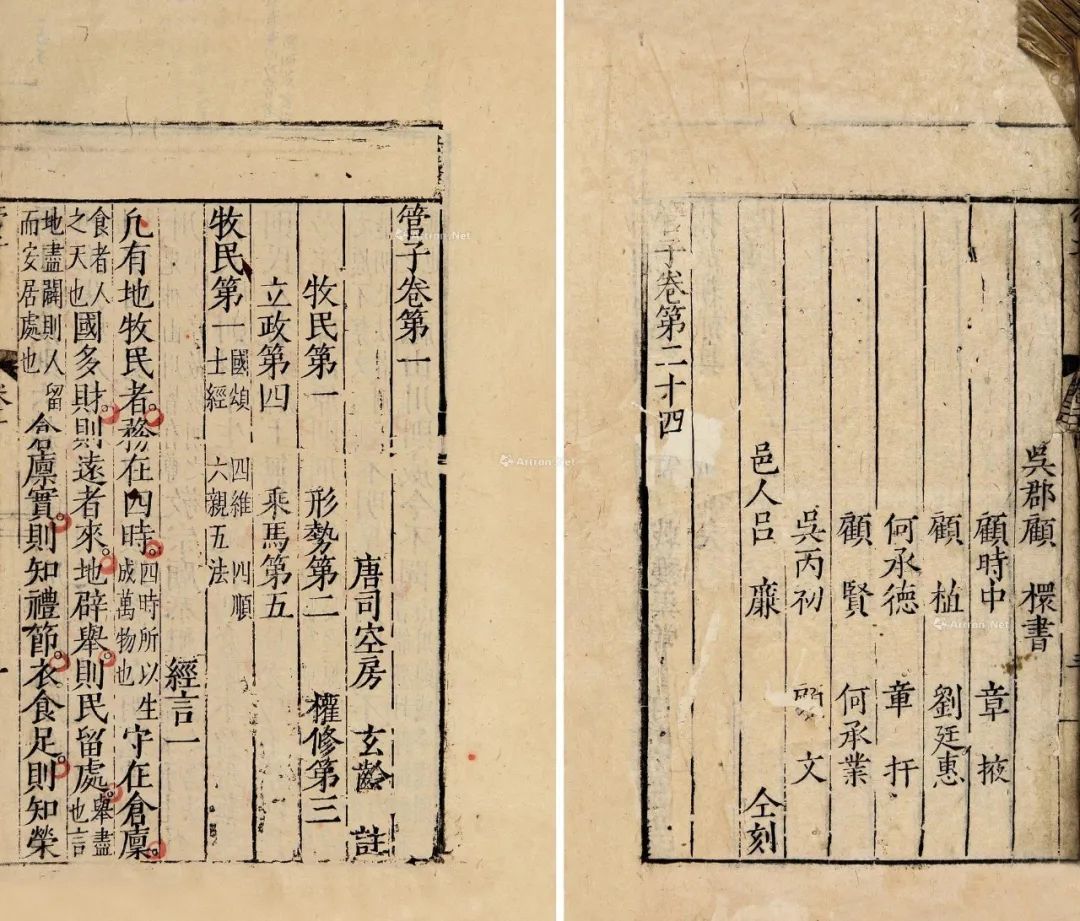 管子卷第一
唐司空房 玄齡 註
牧民第一 形勢第二 權修第三
立政第四 乘馬第五
牧民第一 國頌 四維 四順 士經 六親五法
經言一
凢有地牧民者務在四時四時所以生成萬物也守在倉廩
食者人之天也國多財則遠者來地辟舉則民留處舉盡也言
地盡闢則人留而安居處也倉廩實則知禮節衣食足則知榮
吳郡顧 櫰書
顧時中 章 掖
顧 植 劉廷惠
何承德 章 扞
顧 賢 何承業
吳丙初 文
邑人呂 廉 仝刻
管子卷第二十四
Artron.Net
Artron.Net
Artron.Net